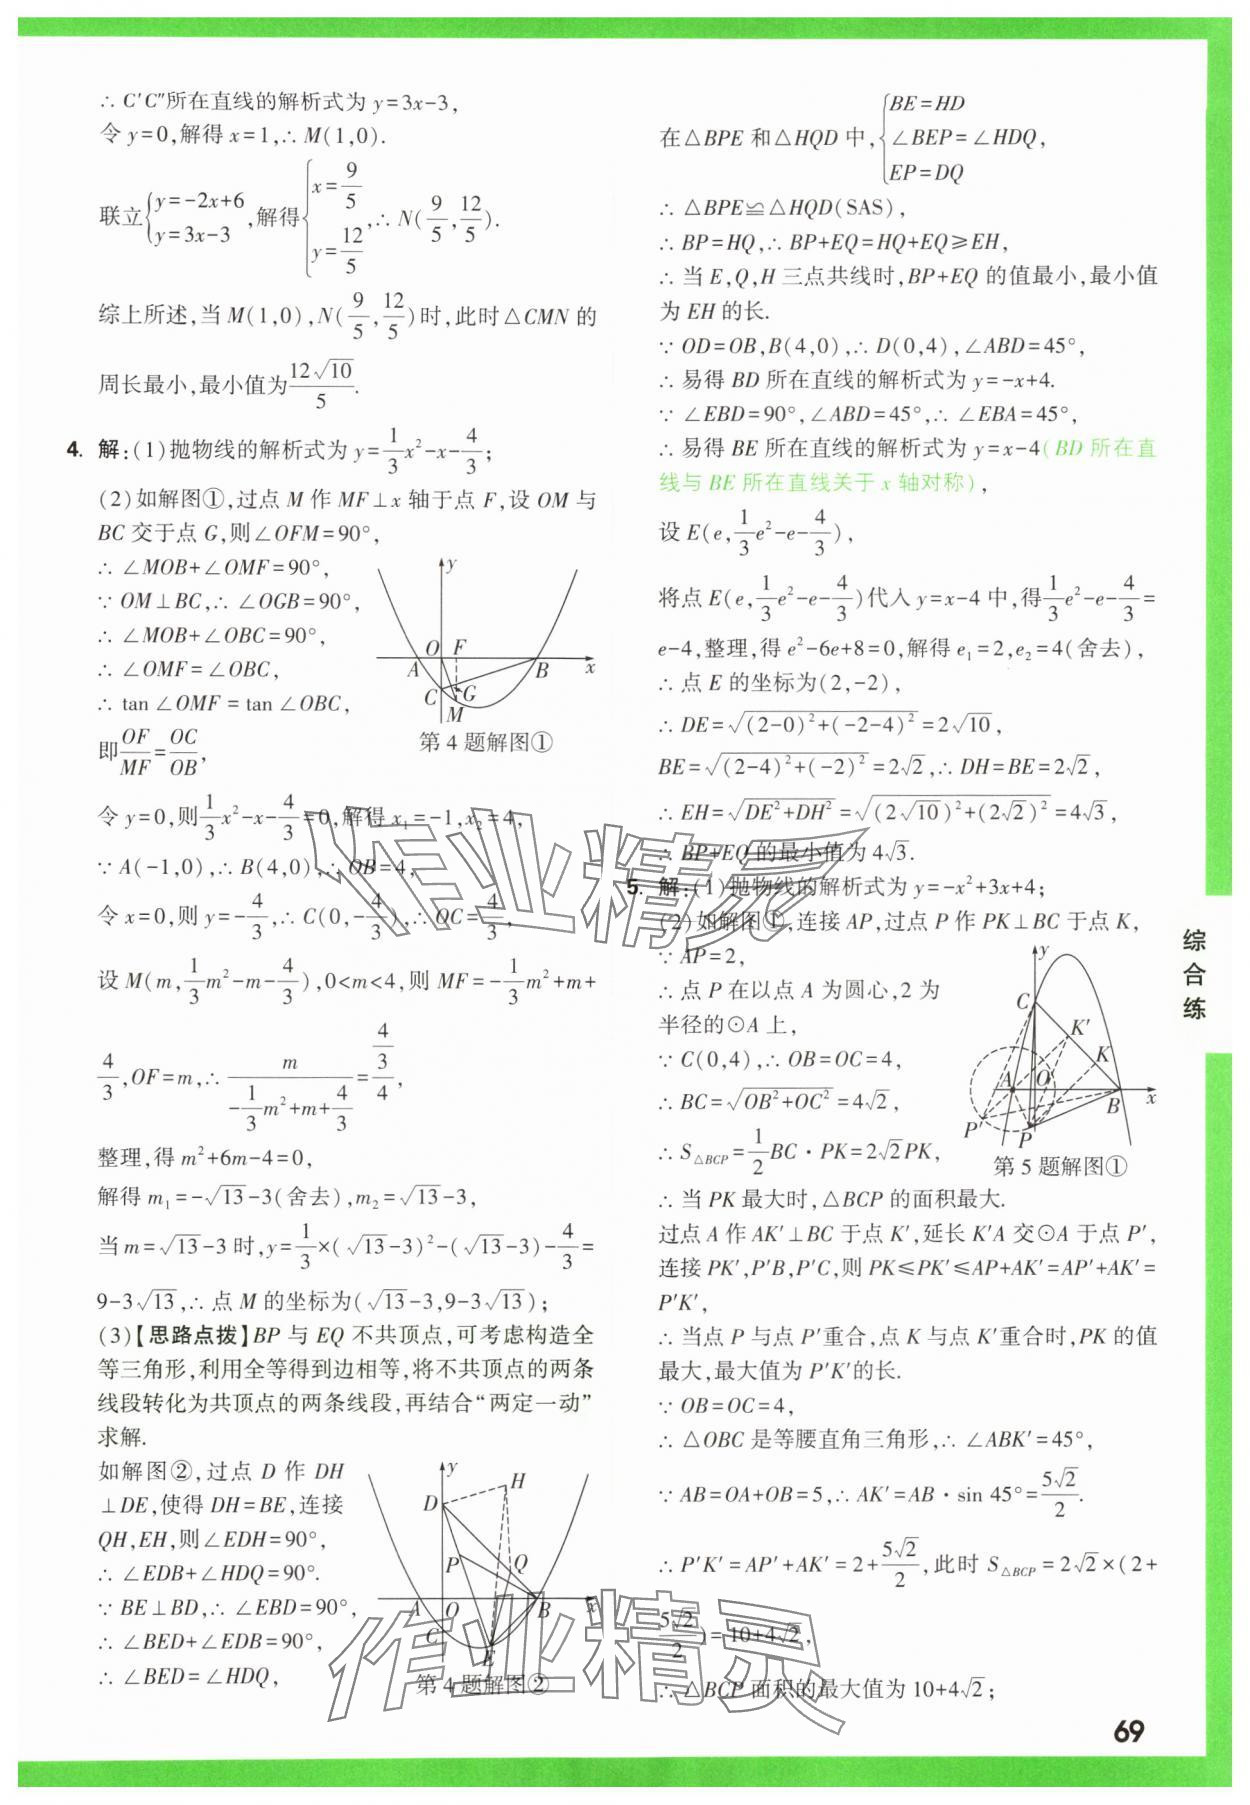 ∴ C′C″所在直线的解析式为 y=3x-3,
令 y=0,解得 x=1,∴ M(1,0).
联立{y=-2x+6, y=3x-3},解得{x=9/5, y=12/5},∴ N(9/5,12/5).
综上所述,当 M(1,0),N(9/5,12/5)时,此时△CMN 的
周长最小,最小值为12√10/5.
4. 解:(1)抛物线的解析式为 y=1/3x²-x-4/3;
(2)如解图①,过点 M 作 MF⊥x 轴于点 F,设 OM 与
BC 交于点 G,则∠OFM=90°,
∴ ∠MOB+∠OMF=90°,
∵ OM⊥BC,∴ ∠OGB=90°,
∴ ∠MOB+∠OBC=90°,
∴ ∠OMF=∠OBC,
∴ tan∠OMF=tan∠OBC,
即OF/MF=OC/OB,
y
O F
A B x
C G
M
第 4 题解图①
令 y=0,则1/3x²-x-4/3=0,解得 x₁=-1,x₂=4,
∵ A(-1,0),∴ B(4,0),∴ OB=4,
令 x=0,则 y=-4/3,∴ C(0,-4/3),∴ OC=4/3,
设 M(m,1/3m²-m-4/3),0<m<4,则 MF=-1/3m²+m+
4/3,OF=m,∴ m/(-1/3m²+m+4/3)=(4/3)/4,
整理,得 m²+6m-4=0,
解得 m₁=-√13-3(舍去),m₂=√13-3,
当 m=√13-3 时,y=1/3×(√13-3)²-(√13-3)-4/3=
9-3√13,∴ 点 M 的坐标为(√13-3,9-3√13);
(3)【思路点拨】BP 与 EQ 不共顶点,可考虑构造全
等三角形,利用全等得到边相等,将不共顶点的两条
线段转化为共顶点的两条线段,再结合“两定一动”
求解.
如解图②,过点 D 作 DH
⊥DE,使得 DH=BE,连接
QH,EH,则∠EDH=90°,
∴ ∠EDB+∠HDQ=90°.
∵ BE⊥BD,∴ ∠EBD=90°,
∴ ∠BED+∠EDB=90°,
∴ ∠BED=∠HDQ,
y
H
D
P Q
A O B x
C
E
第 4 题解图②
在△BPE 和△HQD 中,{BE=HD, ∠BEP=∠HDQ, EP=DQ},
∴ △BPE≌△HQD(SAS),
∴ BP=HQ,∴ BP+EQ=HQ+EQ≥EH,
∴ 当 E,Q,H 三点共线时,BP+EQ 的值最小,最小值
为 EH 的长.
∵ OD=OB,B(4,0),∴ D(0,4),∠ABD=45°,
∴ 易得 BD 所在直线的解析式为 y=-x+4.
∵ ∠EBD=90°,∠ABD=45°,∴ ∠EBA=45°,
∴ 易得 BE 所在直线的解析式为 y=x-4(BD 所在直
线与 BE 所在直线关于 x 轴对称),
设 E(e,1/3e²-e-4/3),
将点 E(e,1/3e²-e-4/3)代入 y=x-4 中,得1/3e²-e-4/3=
e-4,整理,得 e²-6e+8=0,解得 e₁=2,e₂=4(舍去),
∴ 点 E 的坐标为(2,-2),
∴ DE=√((2-0)²+(-2-4)²)=2√10,
BE=√((2-4)²+(-2)²)=2√2,∴ DH=BE=2√2,
∴ EH=√(DE²+DH²)=√((2√10)²+(2√2)²)=4√3,
∴ BP+EQ 的最小值为 4√3.
5. 解:(1)抛物线的解析式为 y=-x²+3x+4;
(2)如解图①,连接 AP,过点 P 作 PK⊥BC 于点 K,
∵ AP=2,
∴ 点 P 在以点 A 为圆心,2 为
半径的⊙A 上,
∵ C(0,4),∴ OB=OC=4,
∴ BC=√(OB²+OC²)=4√2,
∴ S△BCP=1/2BC·PK=2√2PK,
y
C
K′
K
A O
B x
P′ P
第 5 题解图①
∴ 当 PK 最大时,△BCP 的面积最大.
过点 A 作 AK′⊥BC 于点 K′,延长 K′A 交⊙A 于点 P′,
连接 PK′,P′B,P′C,则 PK≤PK′≤AP+AK′=AP′+AK′=
P′K′,
∴ 当点 P 与点 P′重合,点 K 与点 K′重合时,PK 的值
最大,最大值为 P′K′的长.
∵ OB=OC=4,
∴ △OBC 是等腰直角三角形,∴ ∠ABK′=45°,
∵ AB=OA+OB=5,∴ AK′=AB·sin 45°=5√2/2.
∴ P′K′=AP′+AK′=2+5√2/2,此时 S△BCP=2√2×(2+
5√2/2)=10+4√2,
∴ △BCP 面积的最大值为 10+4√2;
综合练
69
作业精灵
作业精灵